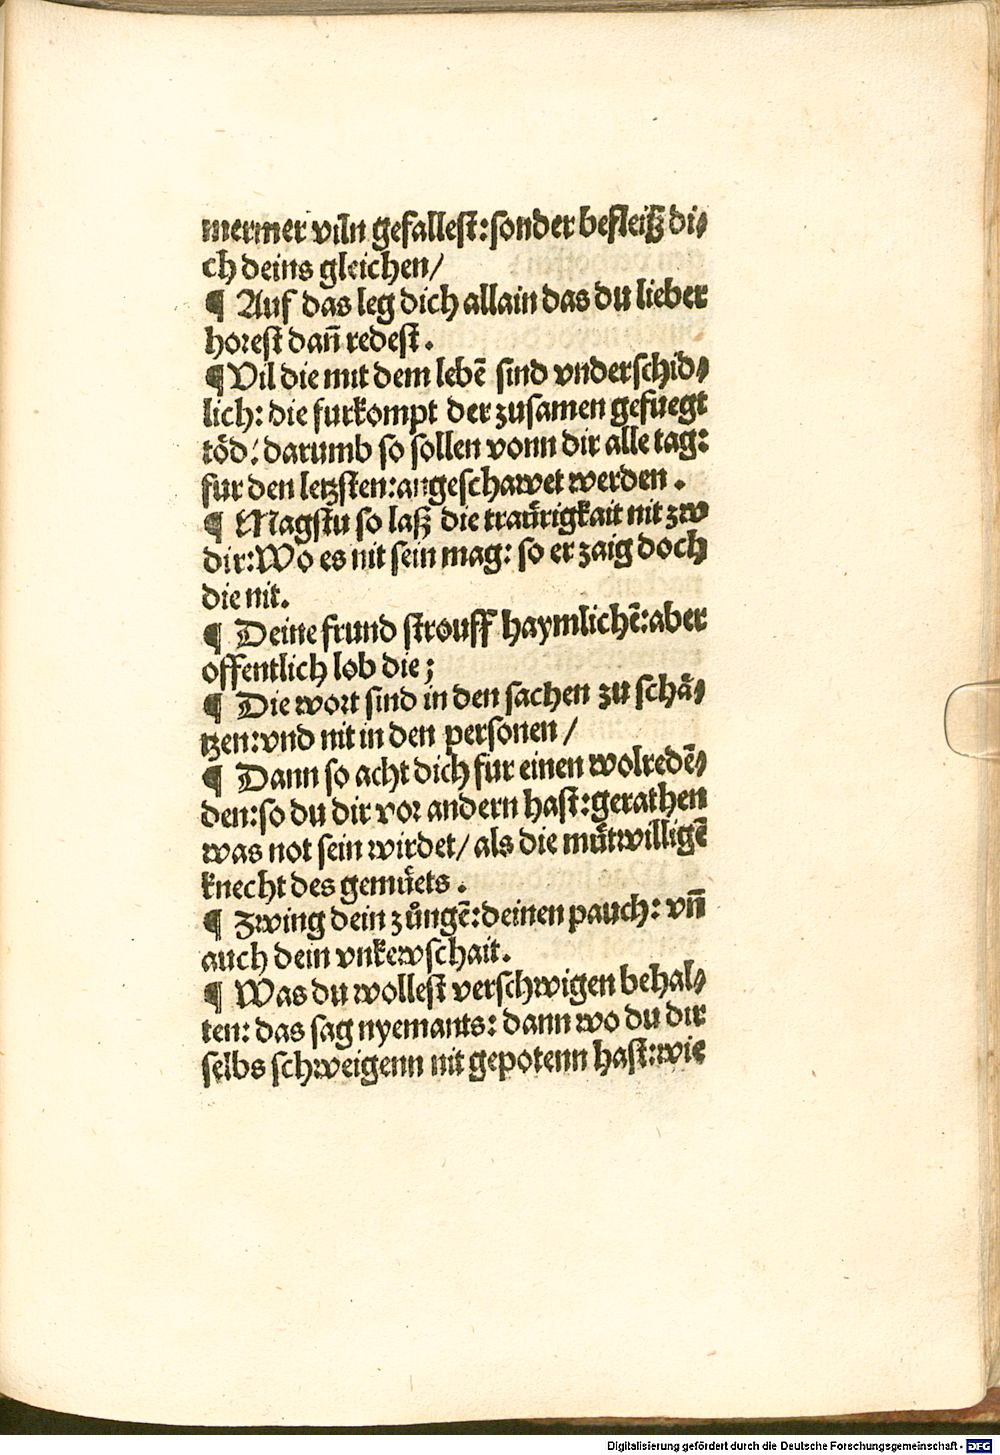 mermer viln gefallest: sonder befleiß di⸗
ch deins gleichen/
¶ Auf das leg dich allain das du lieber
horest dañ redest.
¶ Vil die mit dem lebē sind vnderschid⸗
lich: die furkompt der zusamen gefuegt
töd: darumb so sollen vonn dir alle tag:
fur den letzsten: angeschawet werden.
¶ Magstu so laß die traůrigkait nit zw
dir: Wo es nit sein mag: so er zaig doch
die nit.
¶ Deine frund strouff haymlichē: aber
offentlich lob die;
¶ Die wort sind in den sachen zu schä⸗
tzen: vnd nit in den personen /
¶ Dann so acht dich fur einen wolredē⸗
den: so du dir vor andern hast: gerathen
was not sein wirdet/ als die můtwilligē
knecht des gemůets.
¶ Zwing dein zůngē: deinen pauch: vñ
auch dein vnkewschait.
¶ Was du wollest verschwigen behal⸗
ten: das sag nyemants: dann wo du dir
selbs schweigenn nit gepotenn hast: wie
Digitalisierung gefördert durch die Deutsche Forschungsgemeinschaft - DFG